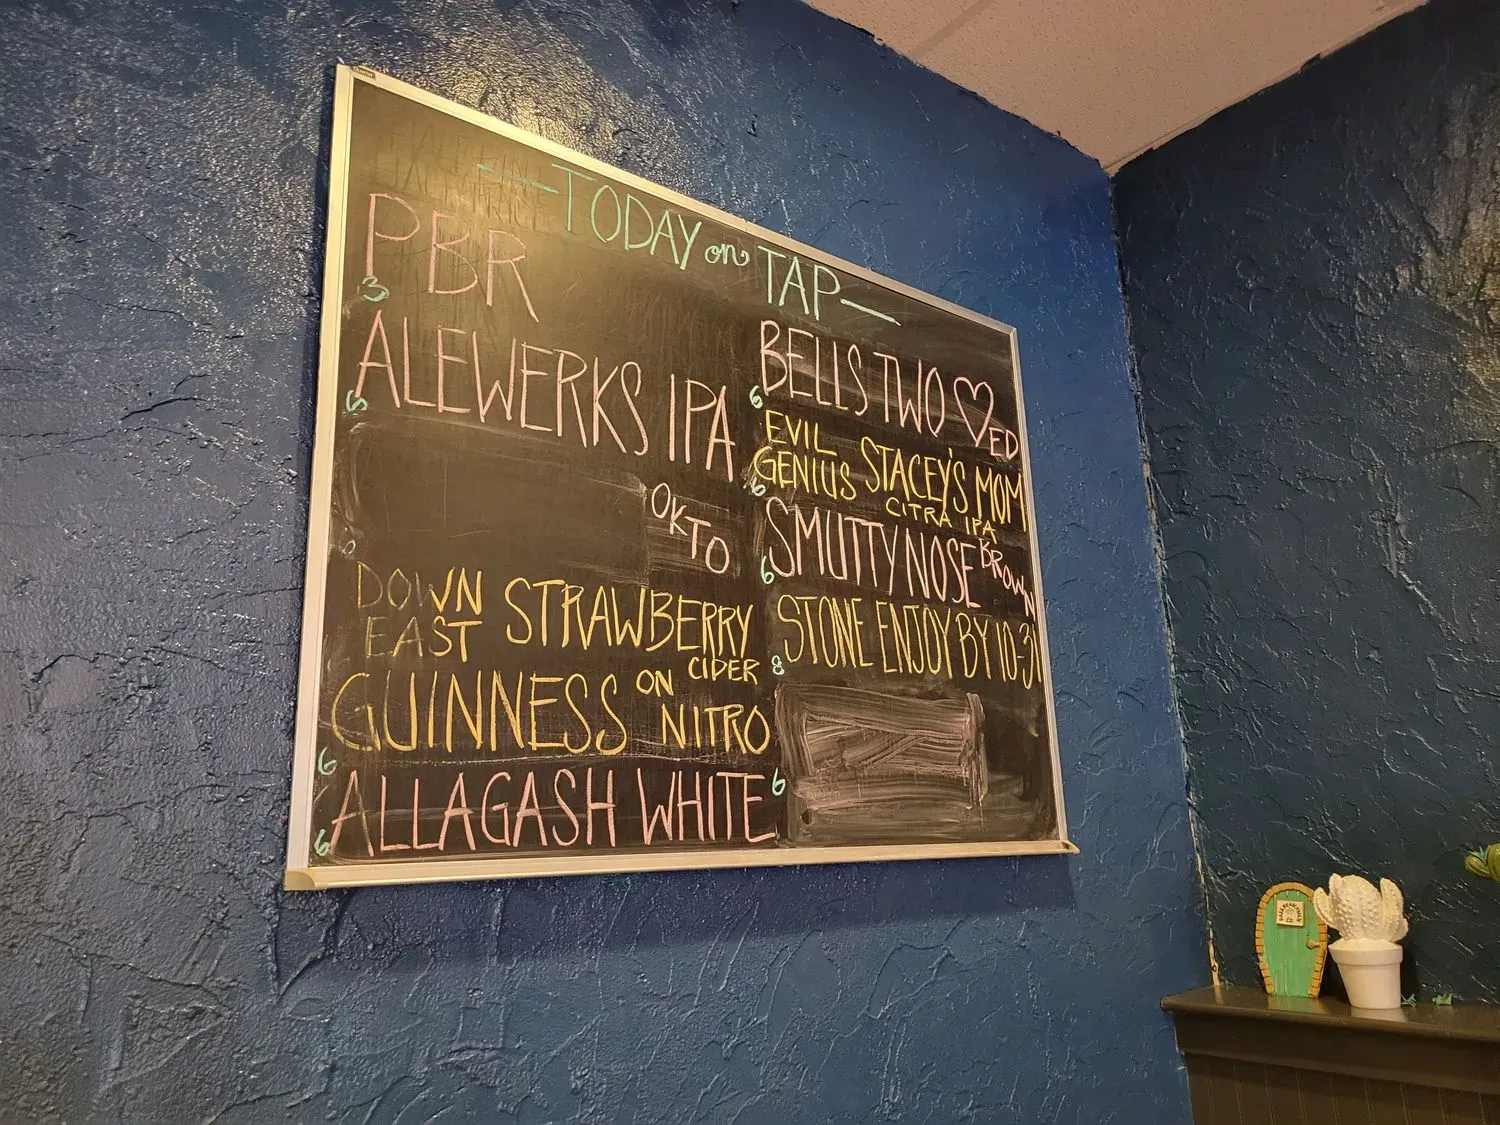 —TODAY on TAP—
PBR
3
ALEWERKS IPA
6
OKTO
DOWN EAST STRAWBERRY
CIDER
GUINNESS ON NITRO
6
ALLAGASH WHITE
6
BELLS TWO ♡ED
6
EVIL GENIUS STACEY'S MOM
CITRA IPA
6
SMUTTYNOSE BROWN
6
STONE ENJOY BY 10-31
8
6